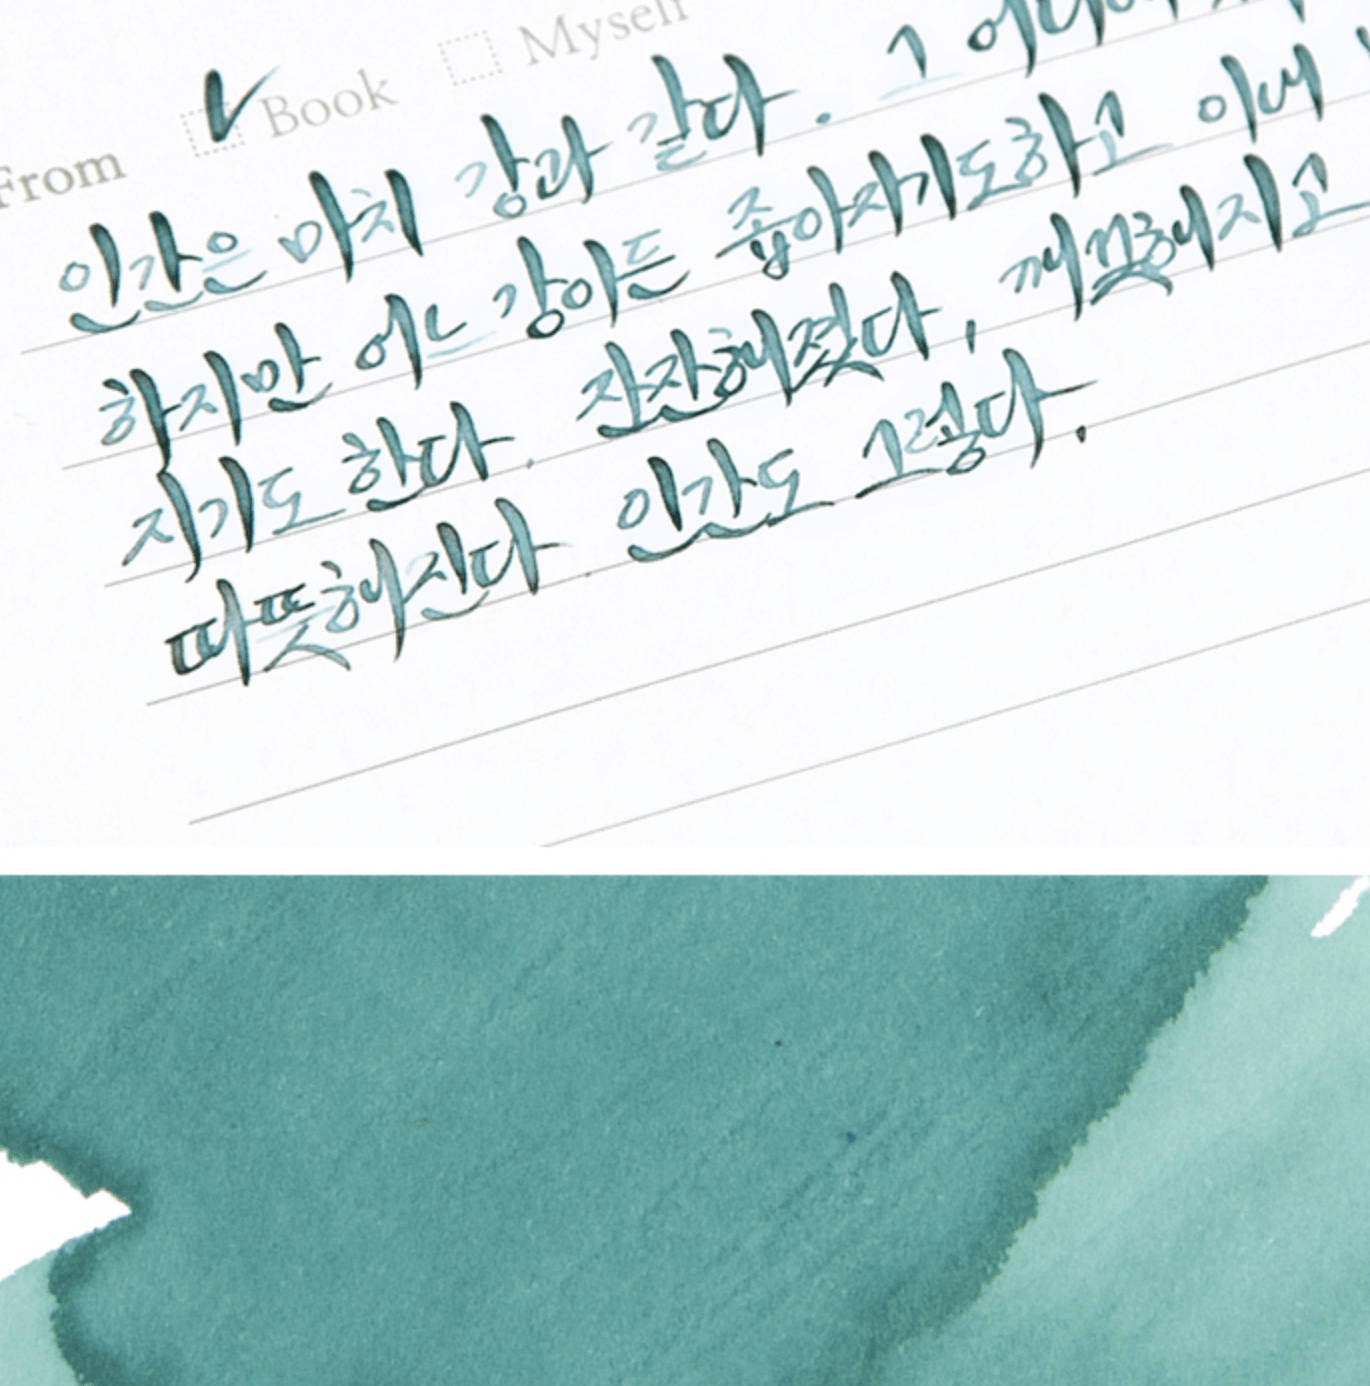 Myself
Book
From
인간은 마치 강과 같다. 그
하지만 어느 강이든 좁아지기도하고 이내
지기도 한다. 잔잔해졌다, 깨끗해지고
따뜻해진다. 인간도 그렇다.